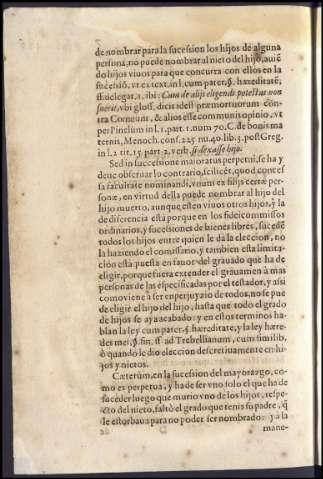 de nombrar para la sucession los hijos de alguna
persona, no puede nombrar al nieto del hijo, auiẽ
do hijos viuos para que concurra con ellos en la
sucesiõ, vt ex text. in l. cum pater, §. hæreditatẽ,
ff. de legat. 2. ibi: Cum de alijs eligendi potestas non
fuerit, vbi gloss. dicit idest præmortuorum con-
tra Corneum, & alios esse communis opinio, vt
per Pinelum in l. 1. part. 1. num. 70. C. de bonis ma
ternis, Menoch. cons. 225. nu. 40. lib. 3. post Greg.
in l. 2. tit. 15. part. 2. verb. si dexasse hijo.
Sed in successione maioratus perpetui, se ha y
deue obseruar lo contrario, scilicèt, quod conces
sa facultate nominandi, vnum ex filijs certæ per-
sonæ, en virtud della puede nombrar al hijo del
hijo muerto, aunque esten viuos otros hijos, y la
de diferencia està porque en los fideicommissos
ordinarios, y sucesiones de bienes libres, sucedẽ
todos los hijos entre quien le dà la eleccion, no
la haziendo el comissario, y tambien esta limita-
ciòn està puesta en fauor del grauado que ha de
eligir, porque fuera extender el grauamen à mas
personas de las especificadas por el testador, y assi
como viene à ser en perjuyzio de todos, no se pue
de eligir el hijo del hijo, hasta que todo el grado
de hijos se aya acabado: y en estos terminos ha-
blan la ley cum pater, §. hæreditate, y la ley hære-
des mei, §. fin. ff. ad Trebellianum, cum similib,
ò quando le dio eleccion descretiuamente en hi-
jos y nietos.
Cæterùm, en la sucession del mayorazgo, co-
mo es perpetua, y ha de ser vno solo el que ha de
suceder luego que murio vno de los hijos, respe-
cto del nieto, faltò el grado que tenis su padre, q̃
le estorbaua para no poder ser nombrado: y a la
mane-